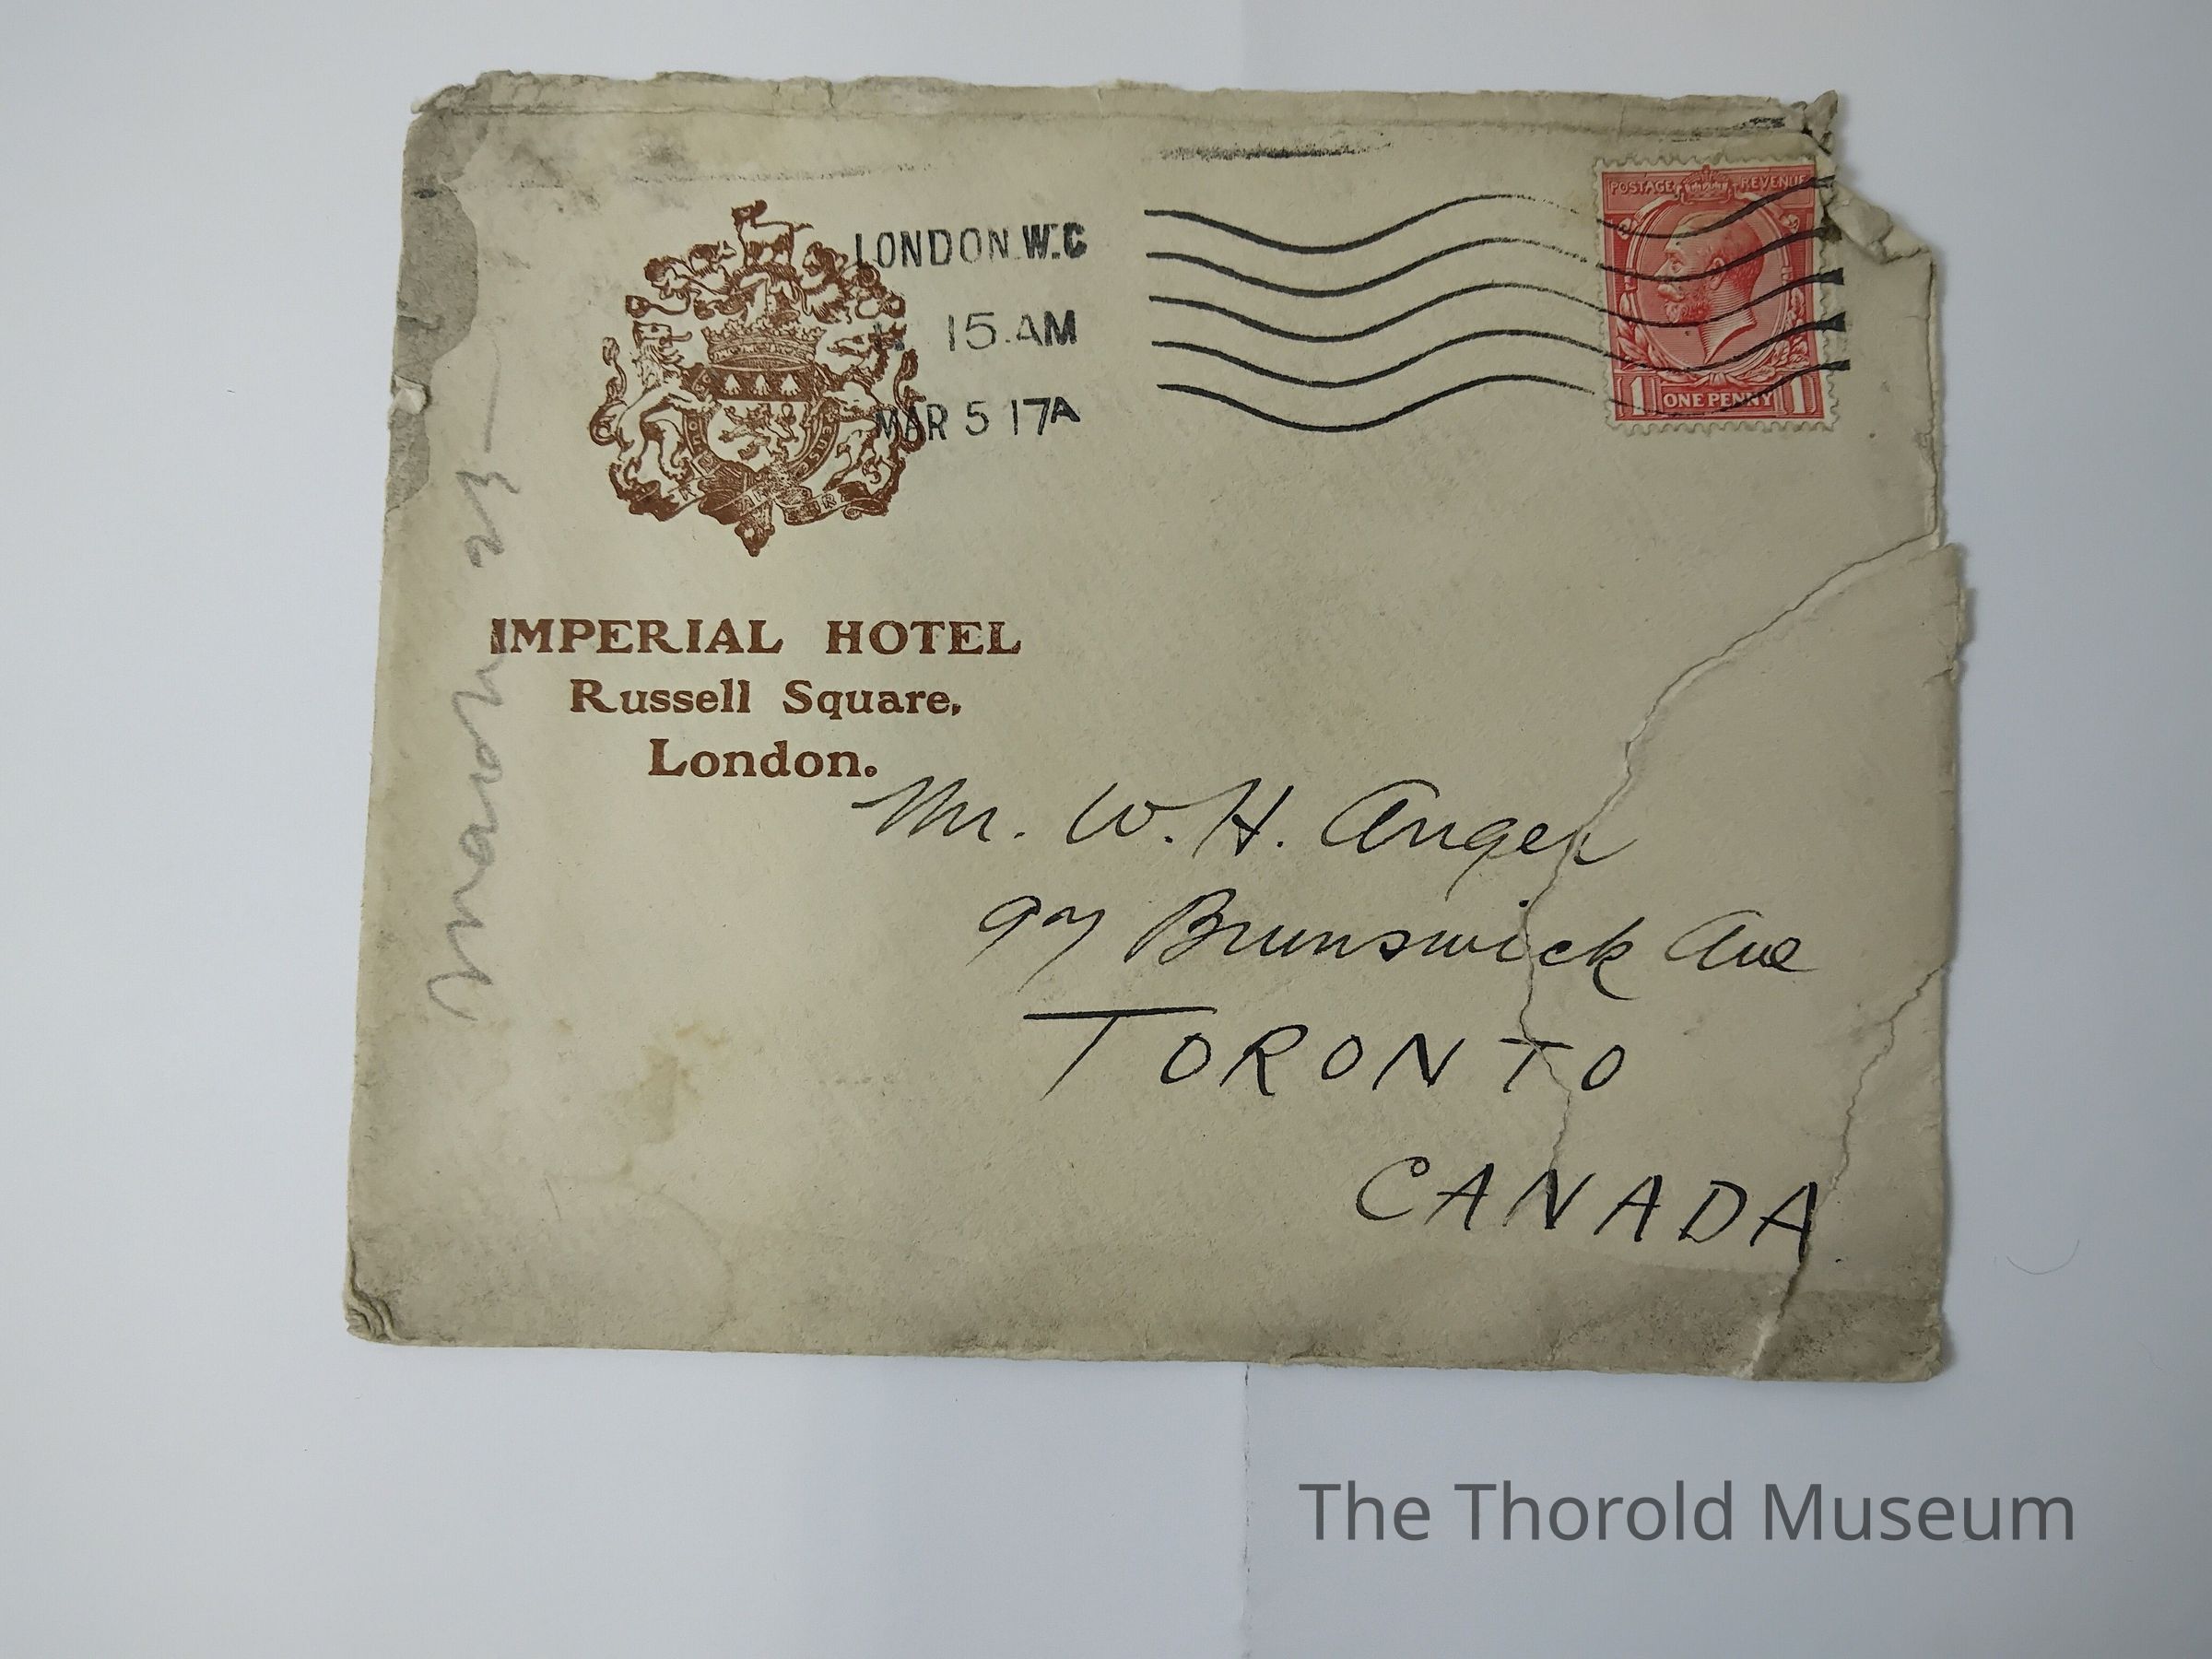 LONDON. W.C
15. AM
MAR 5 17A
POSTAGE REVENUE
1 ONE PENNY 1
IMPERIAL HOTEL
Russell Square.
London.
Mr. W. H. Anger
97 Brunswick Ave
TORONTO
CANADA
March 23
The Thorold Museum